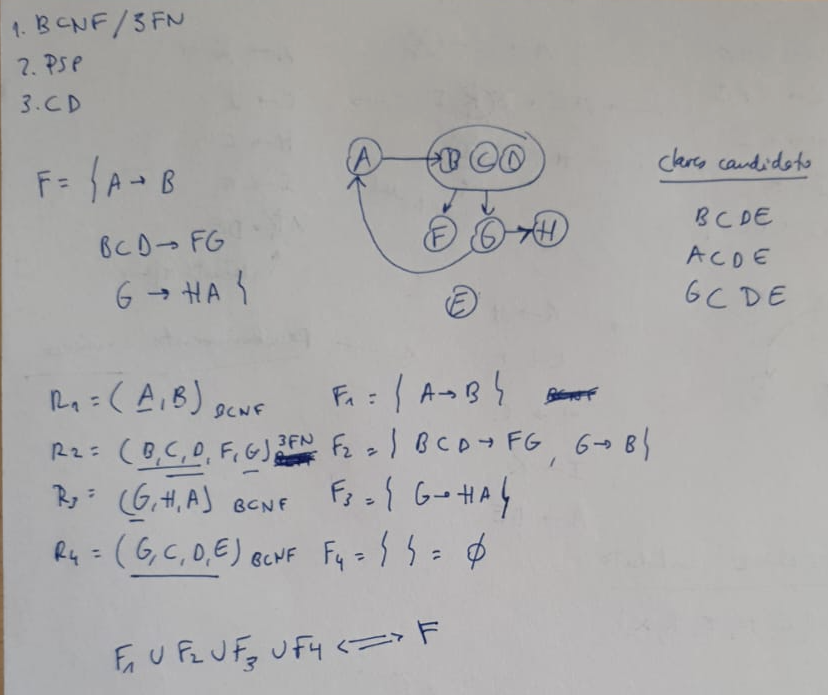 1. BCNF/3FN
2. PSP
3. CD
F = { A → B
BCD → FG
G → HA }
A B C D
F G H
E
claves candidatas
BCDE
ACDE
GCDE
R1 = (A, B) BCNF F1 = { A → B }
R2 = (B, C, D, F, G) 3FN F2 = { BCD → FG, G → B }
R3 = (G, H, A) BCNF F3 = { G → HA }
R4 = (G, C, D, E) BCNF F4 = { } = ∅
F1 ∪ F2 ∪ F3 ∪ F4 <=> F